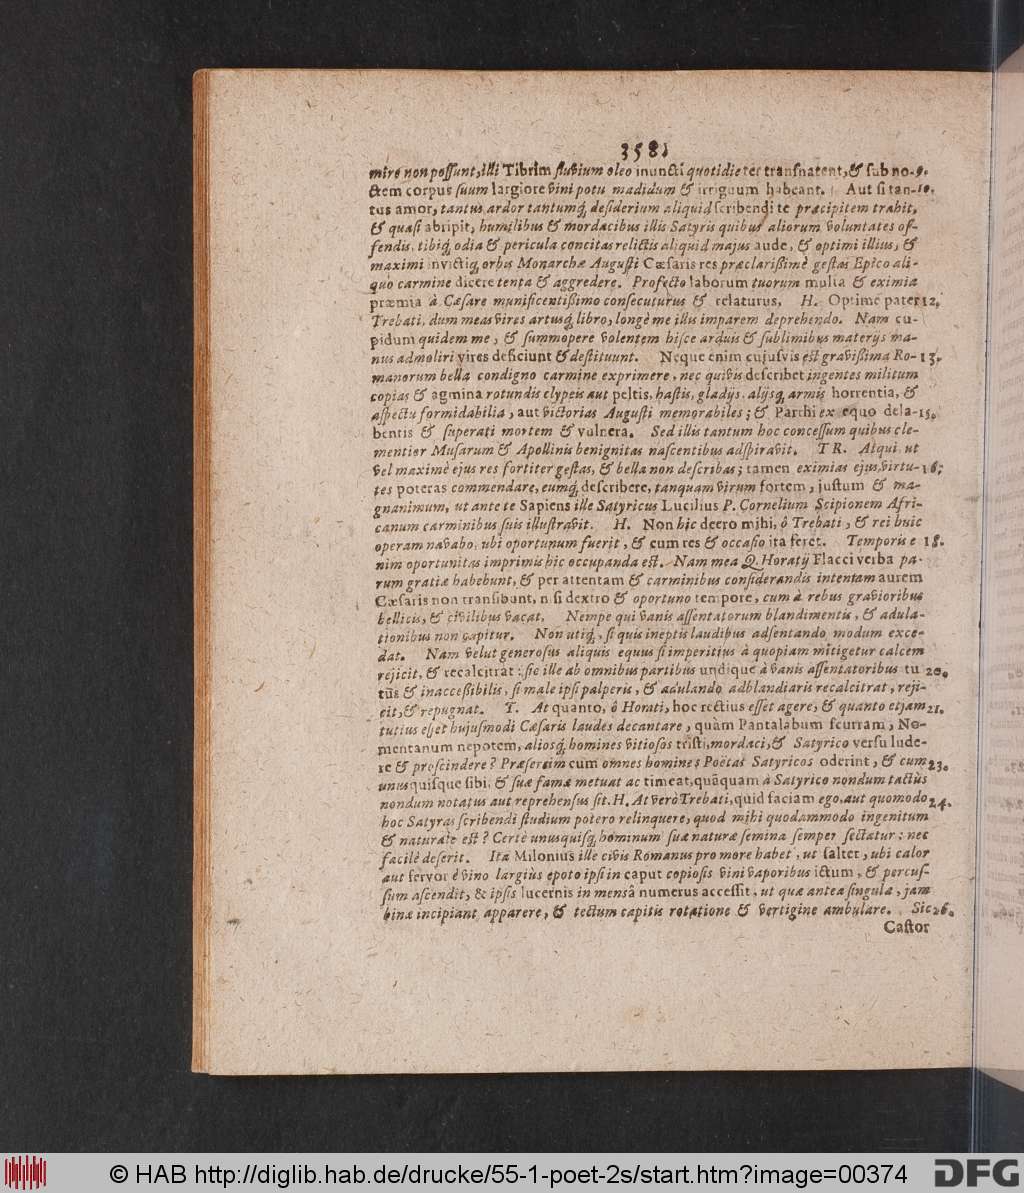 358
mire non possunt, illi Tibrim fluvium oleo inuncti quotidie ter transnatent, & sub no- 9.
ctem corpus suum largiore vini potu madidum & irriguum habeant. Aut si tan- 10.
tus amor, tantus ardor tantumq; desiderium aliquid scribendi te præcipitem trahit,
& quasi abripit, humilibus & mordacibus illis Satyris quibus aliorum voluntates of-
fendis, tibiq; odia & pericula concitas relictis aliquid majus aude, & optimi illius, &
maximi invictiq; orbis Monarchæ Augusti Cæsaris res præclarißimè gestas Epico ali-
quo carmine dicere tenta & aggredere. Profectò laborum tuorum multa & eximia
præmia à Cæsare munificentißimo consecuturus & relaturus. H. Optime pater 12.
Trebati, dum meas vires artusq; libro, longè me illis imparem deprehendo. Nam cu-
pidum quidem me, & summopere volentem hisce arduis & sublimibus materijs ma-
nus admoliri vires deficiunt & destituunt. Neque enim cujusvis est gravißima Ro- 13.
manorum bella condigno carmine exprimere, nec quivis describet ingentes militum
copias & agmina rotundis clypeis aut peltis, hastis, gladijs, alijsq; armis horrentia, &
aspectu formidabilia, aut victorias Augusti memorabiles; & Parthi ex equo dela- 15.
bentis & superati mortem & vulnera. Sed illis tantum hoc concessum quibus cle-
mentior Musarum & Apollinis benignitas nascentibus adspiravit. TR. Atqui ut
vel maximè ejus res fortiter gestas, & bella non describas; tamen eximias ejus virtu- 16.
tes poteras commendare, eumq; describere, tanquam virum fortem, justum & ma-
gnanimum, ut ante te Sapiens ille Satyricus Lucilius P. Cornelium Scipionem Afri-
canum carminibus suis illustravit. H. Non hic deero mihi, ô Trebati, & rei huic
operam navabo, ubi oportunum fuerit, & cum res & occasio ita feret. Temporis e 18.
nim oportunitas imprimis hic occupanda est. Nam mea Q. Horatij Flacci verba pa-
rum gratiæ habebunt, & per attentam & carminibus considerandis intentam aurem
Cæsaris non transibunt, nisi dextro & oportuno tempore, cum à rebus gravioribus
bellicis, & civilibus vacat. Nempe qui vanis assentatorum blandimentis, & adula-
tionibus non capitur. Non utiq;, si quis ineptis laudibus adsentando modum exce-
dat. Nam velut generosus aliquis equus si imperitius à quopiam mitigetur calcem
rejicit, & recalcitrat: sic ille ab omnibus partibus undique à vanis assentatoribus tu 20.
tus & inaccessibilis, si male ipsi palperis, & adulando adblandiaris recalcitrat, reji-
cit, & repugnat. T. At quanto, ô Horati, hoc rectius esset agere, & quanto etjam 21.
tutius esset hujusmodi Cæsaris laudes decantare, quàm Pantalabum scurram, No-
mentanum nepotem, aliosq; homines vitiosos tristi, mordaci, & Satyrico versu lude-
re & proscindere? Præsertim cum omnes homines Poëtas Satyricos oderint, & cum 23.
unusquisque sibi, & suæ famæ metuat ac timeat, quãquam à Satyrico nondum tactus
nondum notatus aut reprehensus sit. H. At verò Trebati, quid faciam ego, aut quomodo 24.
hoc Satyras scribendi studium potero relinquere, quod mihi quodammodo ingenitum
& naturale est? Certè unusquisq; hominum suæ naturæ semina semper sectatur: nec
facilè deserit. Ita Milonius ille civis Romanus pro more habet, ut saltet, ubi calor
aut fervor è vino largiùs epoto ipsi in caput copiosis vini vaporibus ictum, & percus-
sum ascendit, & ipsis lucernis in mensâ numerus accessit, ut quæ antea singulæ, jam
binæ incipiant apparere, & tectum capitis rotatione & vertigine ambulare. Sic 26.
Castor
© HAB http://diglib.hab.de/drucke/55-1-poet-2s/start.htm?image=00374
DFG